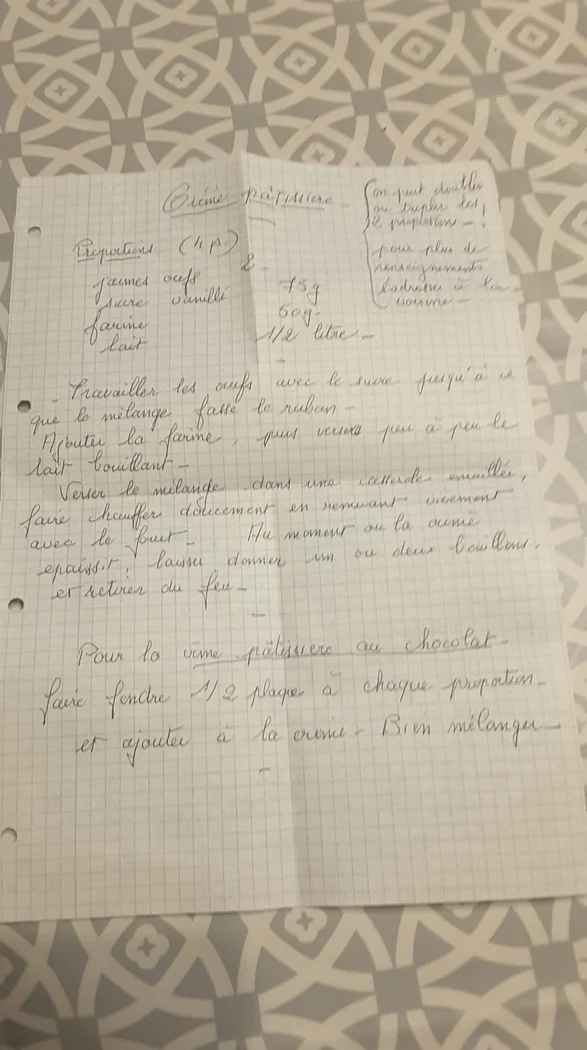 Crème pâtissière -
Proportions (4 p.)
jaunes oeufs 2 -
sucre vanillé 75g
farine 50g -
lait 1/2 litre -
on peut doubler
ou tripler les
proportions - !
pour plus de
renseignements
s'adresser à la
voisine -
- Travailler les oeufs avec le sucre jusqu'à ce
que le mélange fasse le ruban -
Ajouter la farine, puis verser peu à peu le
lait bouillant -
Verser le mélange dans une casserole émaillée,
faire chauffer doucement en remuant vivement
avec le fouet - Au moment ou la crème
epaissit, laisser donner un ou deux bouillons.
et retirer du feu -
Pour la crème pâtissière au chocolat -
faire fondre 1/2 plaque à chaque proportion -
et ajouter à la crème - Bien mélanger -